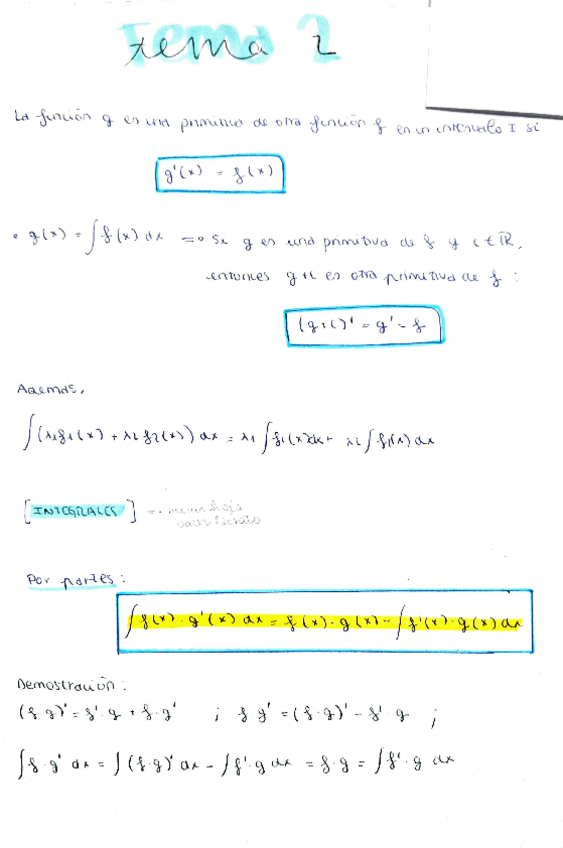 Tema 2
La función g es una primitiva de otra función f en un intervalo I si
g'(x) = f(x)
• g(x) = ∫f(x) dx => Si g es una primitiva de f y c ∈ ℝ,
entonces g+c es otra primitiva de f :
(g+c)' = g' = f
Además,
∫(λ1f1(x) + λ2f2(x)) dx = λ1∫f1(x)dx + λ2∫f2(x) dx
[INTEGRALES]
Por partes:
∫f(x)·g'(x) dx = f(x)·g(x) - ∫f'(x)·g(x) dx
Demostración:
(f·g)' = f'·g + f·g' ; f·g' = (f·g)' - f'·g ;
∫f·g' dx = ∫(f·g)' dx - ∫f'·g dx = f·g = ∫f'·g dx